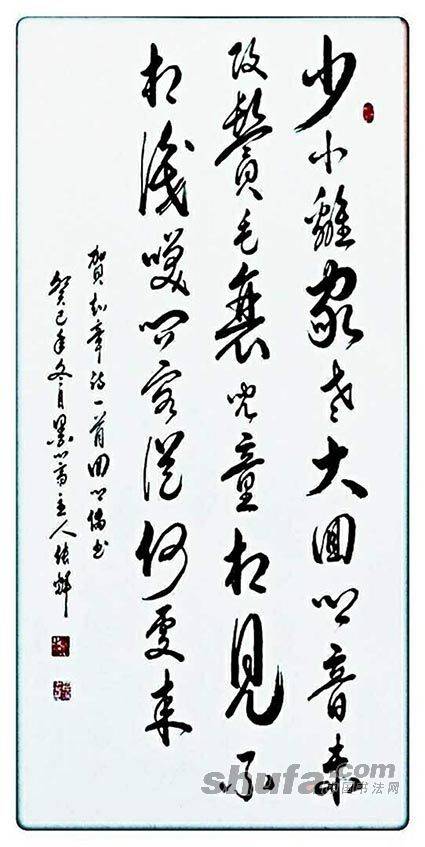 少小離家老大回鄉音未
改鬢毛衰兒童相見不
相識笑問客從何處來
賀知章詩一首回鄉偶書
癸巳年冬月墨心齋主人張輝
shufa.com
中国书法网